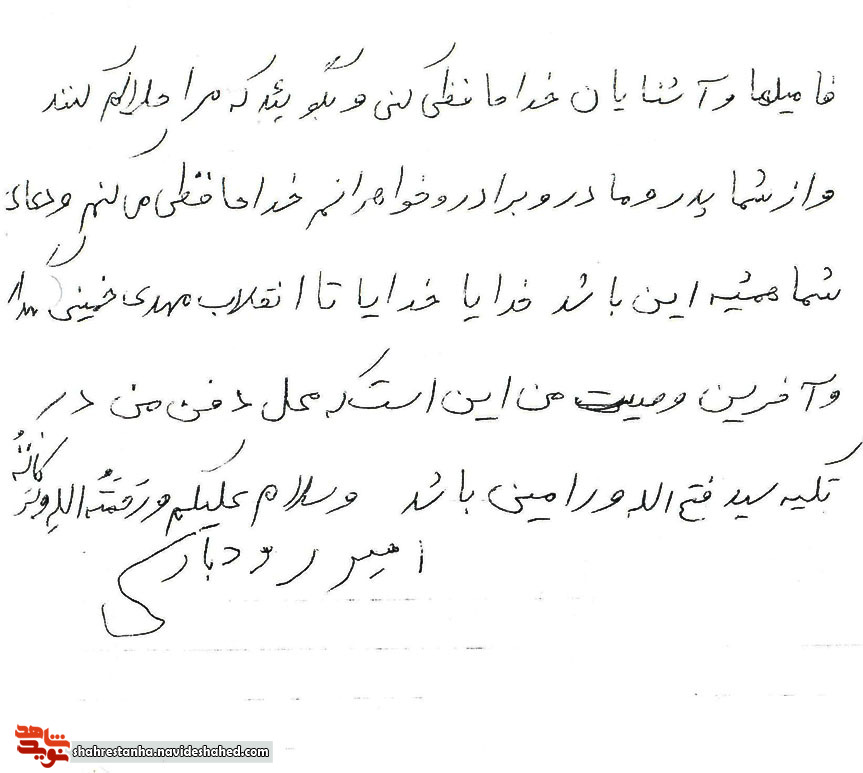 فامیلها و آشنایان خداحافظی کنی و بگویید که مرا حلالم کنند
و از شما پدر و مادر و برادر و خواهرانم خداحافظی می کنم و دعای
شما همیشه این باشد خدایا خدایا تا انقلاب مهدی خمینی
و آخرین وصیت من این است که محل دفن من در
تکیه سید فتح الله ورامینی باشد وسلام علیکم و رَحمَتُه اللهِ وبَرَکاتُهُ
امیر رودباری
نوید شاهد
shahrestanha.navideshahed.com